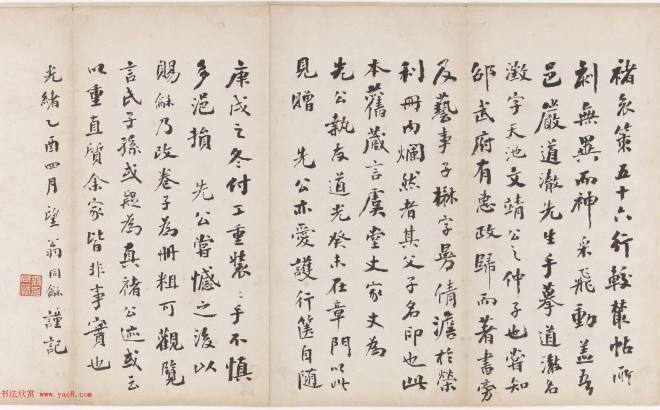 褚哀策五十六行較叢帖所
刻無異而神采飛動蓋吾
邑嚴道澈先生手摹道澈名
澂字天池文靖公之仲子也嘗知
邵武府有惠政歸而著書旁
及藝事子楙字曼倩澹於榮
利冊內爛然者其父子名印也此
本舊藏言虞堂丈家丈為
先公執友道光癸未在章門以此
見贈 先公亦愛護行篋自隨
庚戌之冬付工重裝工手不慎
多浥損 先公嘗憾之後以
賜龢乃改卷子為冊粗可觀覽
言氏子孫或題為真褚公迹或云
以重直質余家皆非事實也
光緒乙酉四月望翁同龢謹記
书法欣赏
www.yac8.com